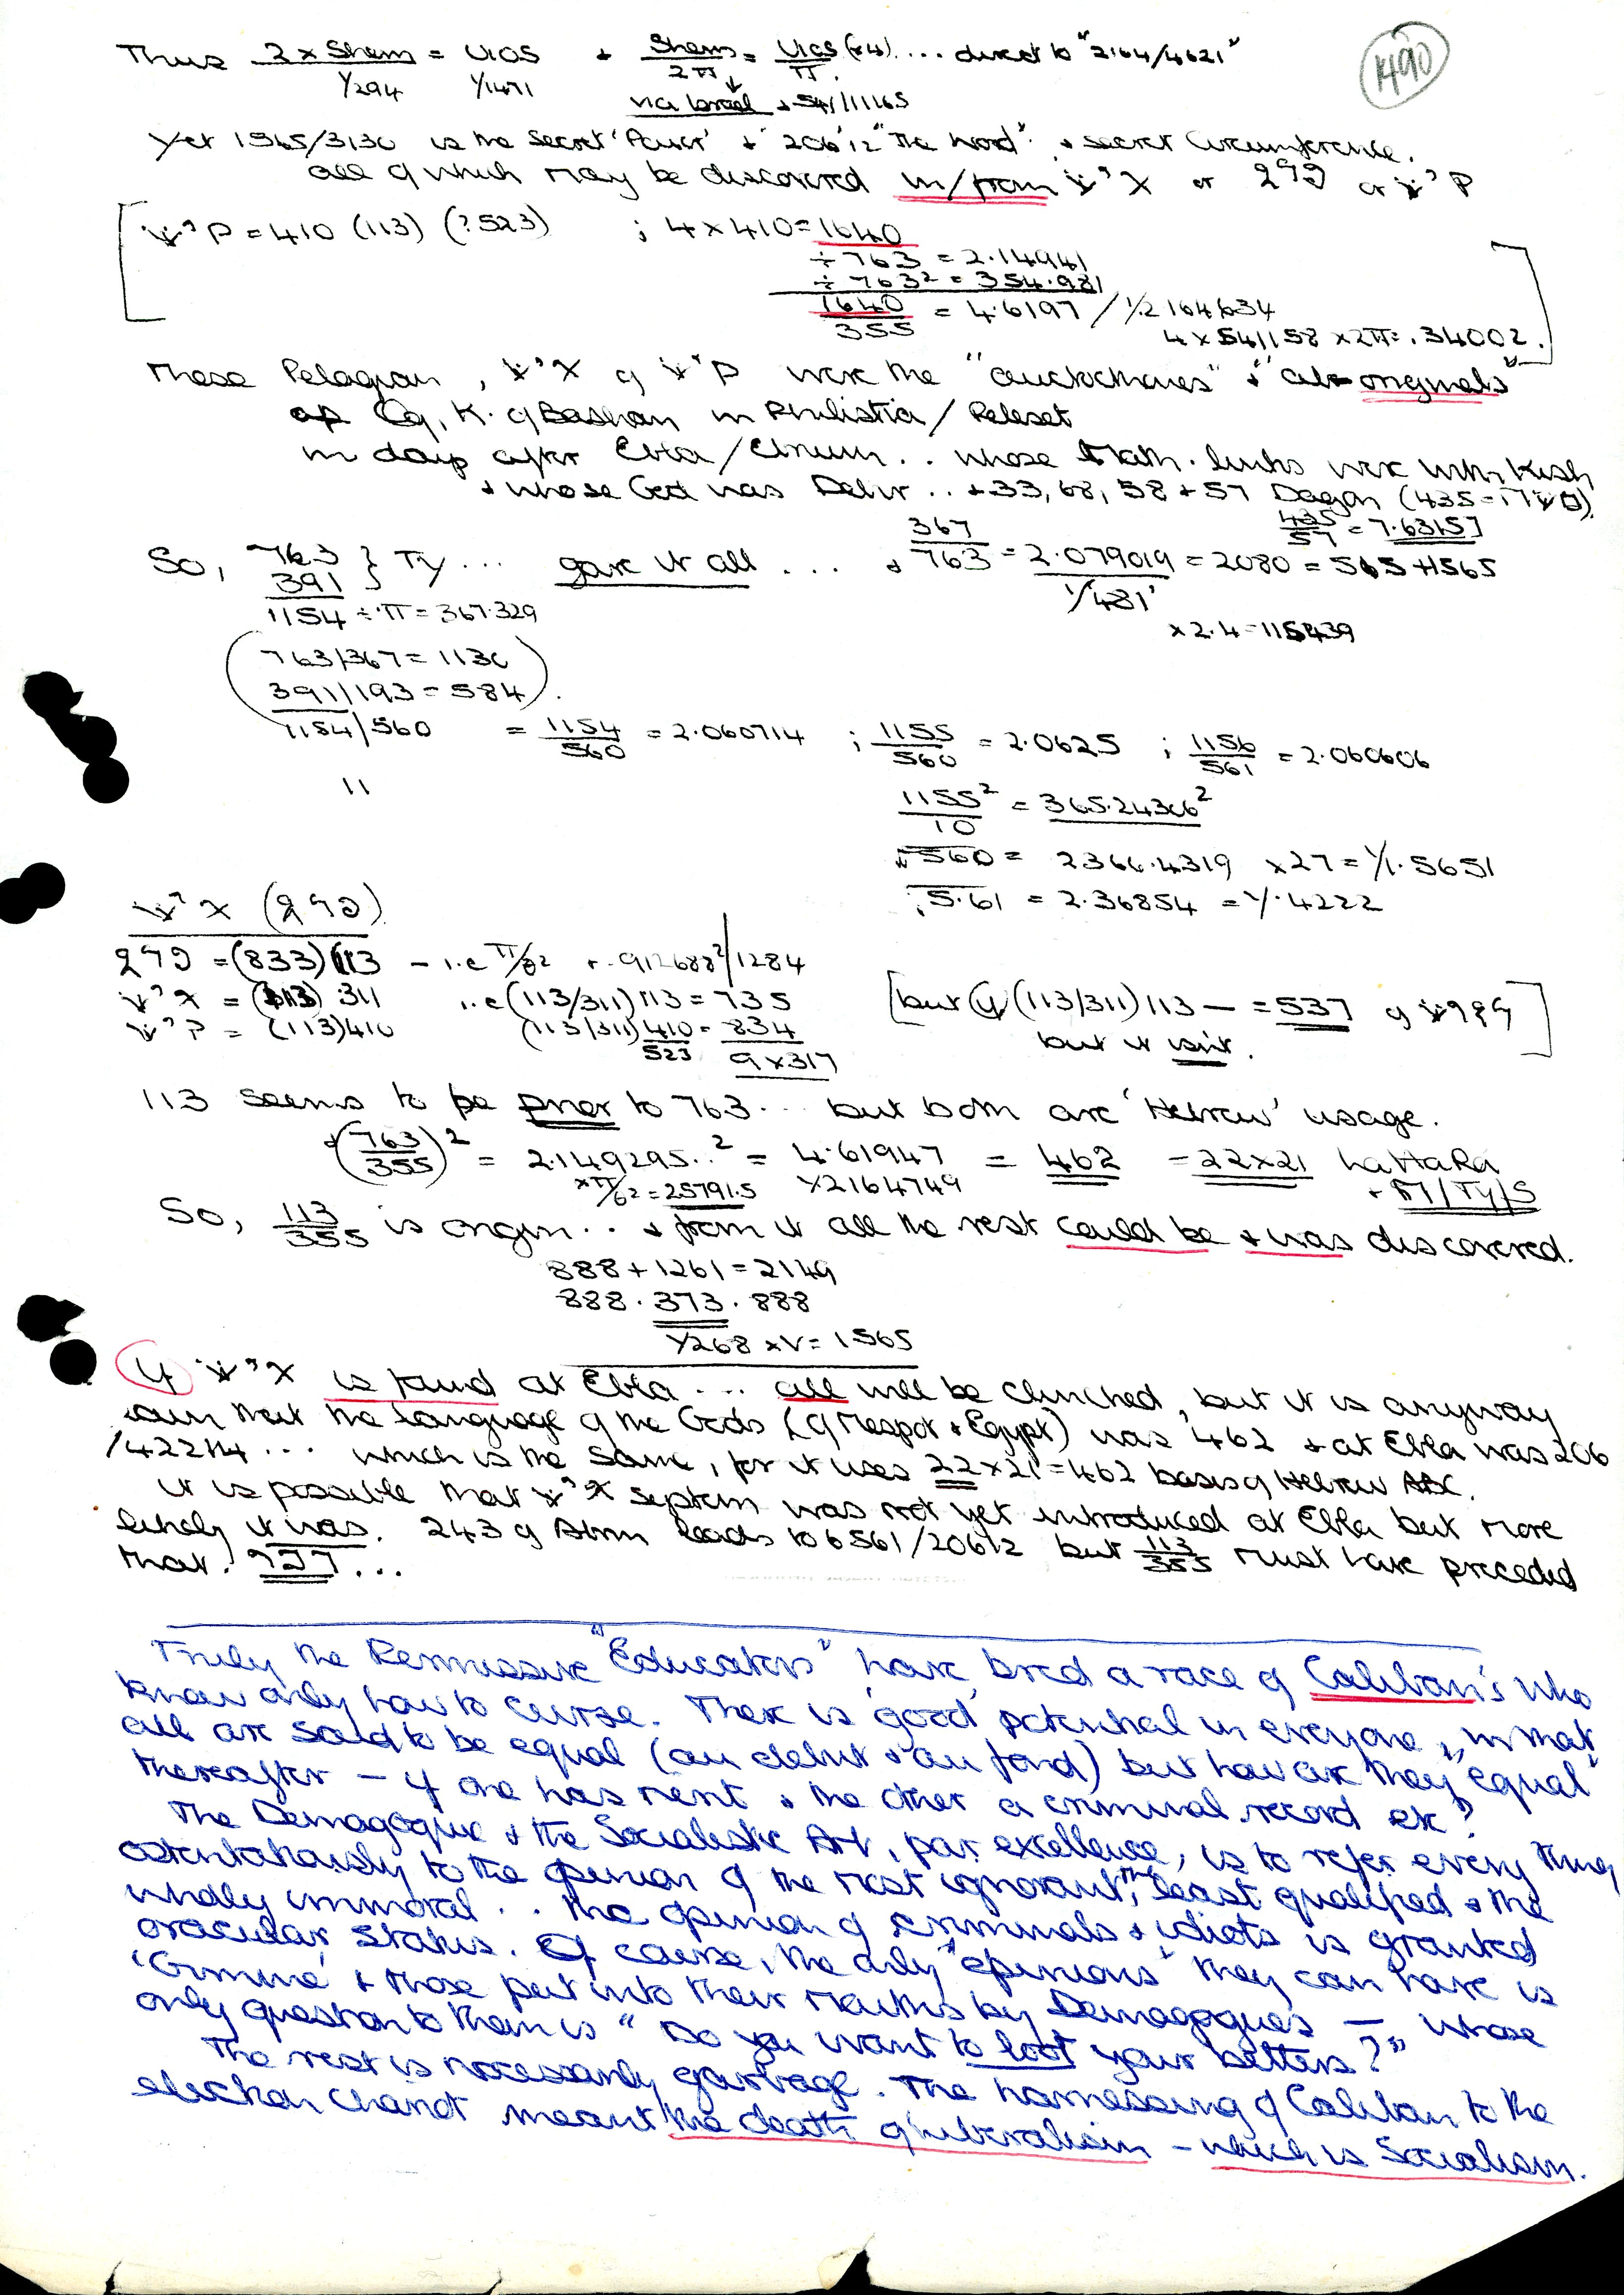 1490
Thus 2 x Shem / 1/294 = UIOS / 1/1471 + Shem / 2π = UIOS (x4) / π .... direct to "2164/4621"
via Israel + 541/11165
Yet 1565/3130 is the Secret 'Power' + '206'12 "The Word" + secret Circumference.
all of which may be discovered in/from שׁיא or פיף or שׁיק
= 410 (113) (?523) ; 4 x 410 = 1640
÷ 763 = 2.14941
÷ 763² = 354.981
1640/355 = 4.6197 / 1/.2164634
4 x 541158 x 2π = .34002.
These Pelagian, of were the "autochthones" + "ab-originals"
of Og, K. of Bashan in Philistia / Peleset
in days after Ebla / Elnum .. whose Math. links were with Kush
+ whose God was .. +33, 68, 58 + 57 Dagon (435 =
435/57 = 7.63157
So, 763 391 } Ty ... gave it all ... + 367/763 = 2.079019 = 2080 = 565 + 1565
1/481
1154 ÷ π = 367.329
x 2.4 = 115439
763/367 = 1130
391/193 = 584
1154/560 = 1154/560 = 2.060714 ; 1155/560 = 2.0625 ; 1156/561 = 2.060606
11
1155²/10 = 365.24306²
√560 = 2366.4319 x 27 = 1/1.5651
√5.61 = 2.36854 = 1/.4222
= (833) 113 – i.e π/62 + .912688²/1284
= (113) 311 i.e (113/311) 113 = 735 [but if (113/311) 113 — = 537 of
= (113) 410 (113/311) 410 = 834 but it isn't.]
523 9 x 317
113 seems to be prior to 763... but both are 'Hebrew' usage.
+ (763/355)² = 2.149295..² = 4.61947 = 462 = 22 x 21 haHaRa
x π/62 = 25791.5 1/2164749 + /Ty/S
So, 113/355 is origin .. + from it all the rest could be + was discovered.
888 + 1261 = 2149
888 . 373 . 888
1/268 x V = 1565
If is found at Ebla ... all will be clinched, but it is anyway
sure that the language of the Gods (of Mespot + Egypt) was 462 + at Ebla was 206
/42214 ... which is the same, for it uses 22 x 21 = 462 basis of Hebrew ABC.
It is possible that system was not yet introduced at Ebla but more
likely it was. 243 of Abrm leads to 6561/20612 but 113/355 must have preceded
that. ...
Truly the Permissive "Educators" have bred a race of Caliban's who
know only how to curse. There is 'good' potential in everyone, in that
all are said to be equal (au debut + au fond) but how are they "equal"
thereafter – if one has merit + the other a criminal record etc?
The Demagogue + the Socialistic Art, par excellence, is to refer every thing
ostentatiously to the opinion of the most ignorant, the least qualified + the
wholly immoral .. the opinion of criminals + idiots is granted
oracular status. Of course, the only "opinions" they can have is
'Gimme' + those put into their mouths by Demagogues — whose
only question to them is "Do you want to loot your betters?"
The rest is necessarily garbage. The harnessing of Caliban to the
election chariot meant the death of liberalism – which is Socialism.